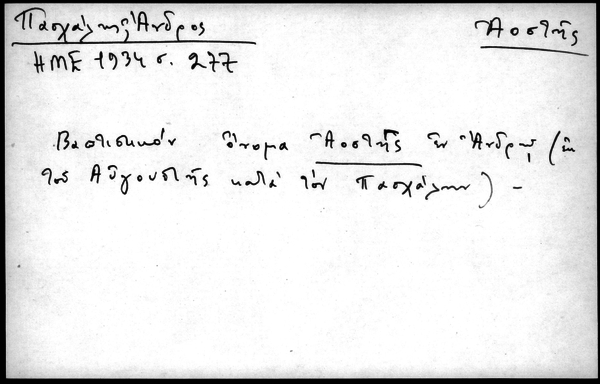 Πασχάλης, Ἄνδρος
Ἀοστῆς
ΗΜΕ 1934 σ. 277
Βαπτιστικὸν ὄνομα Ἀοστῆς ἐν Ἄνδρῳ (ἐκ
τοῦ Αὐγουστῆς κατὰ τὸν Πασχάλην) –